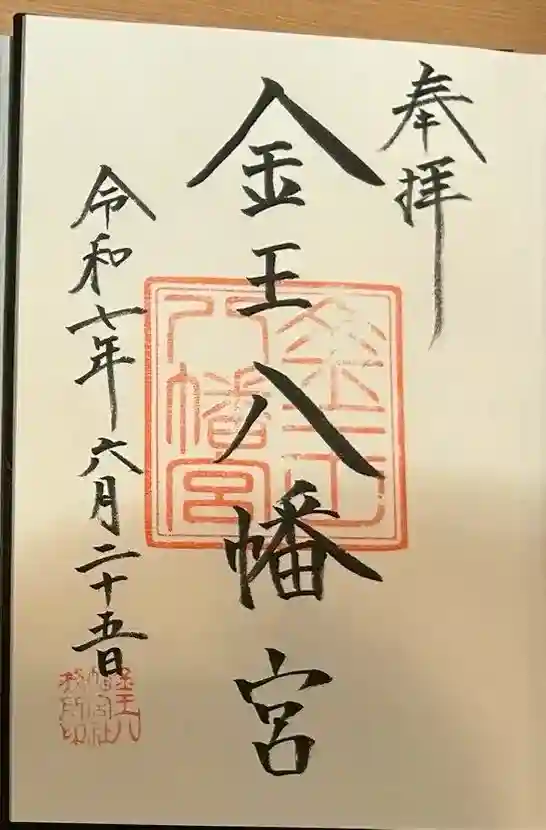 奉拝
金王八幡宮
令和七年六月二十五日
金王八幡宮
金王八幡宮社務所印